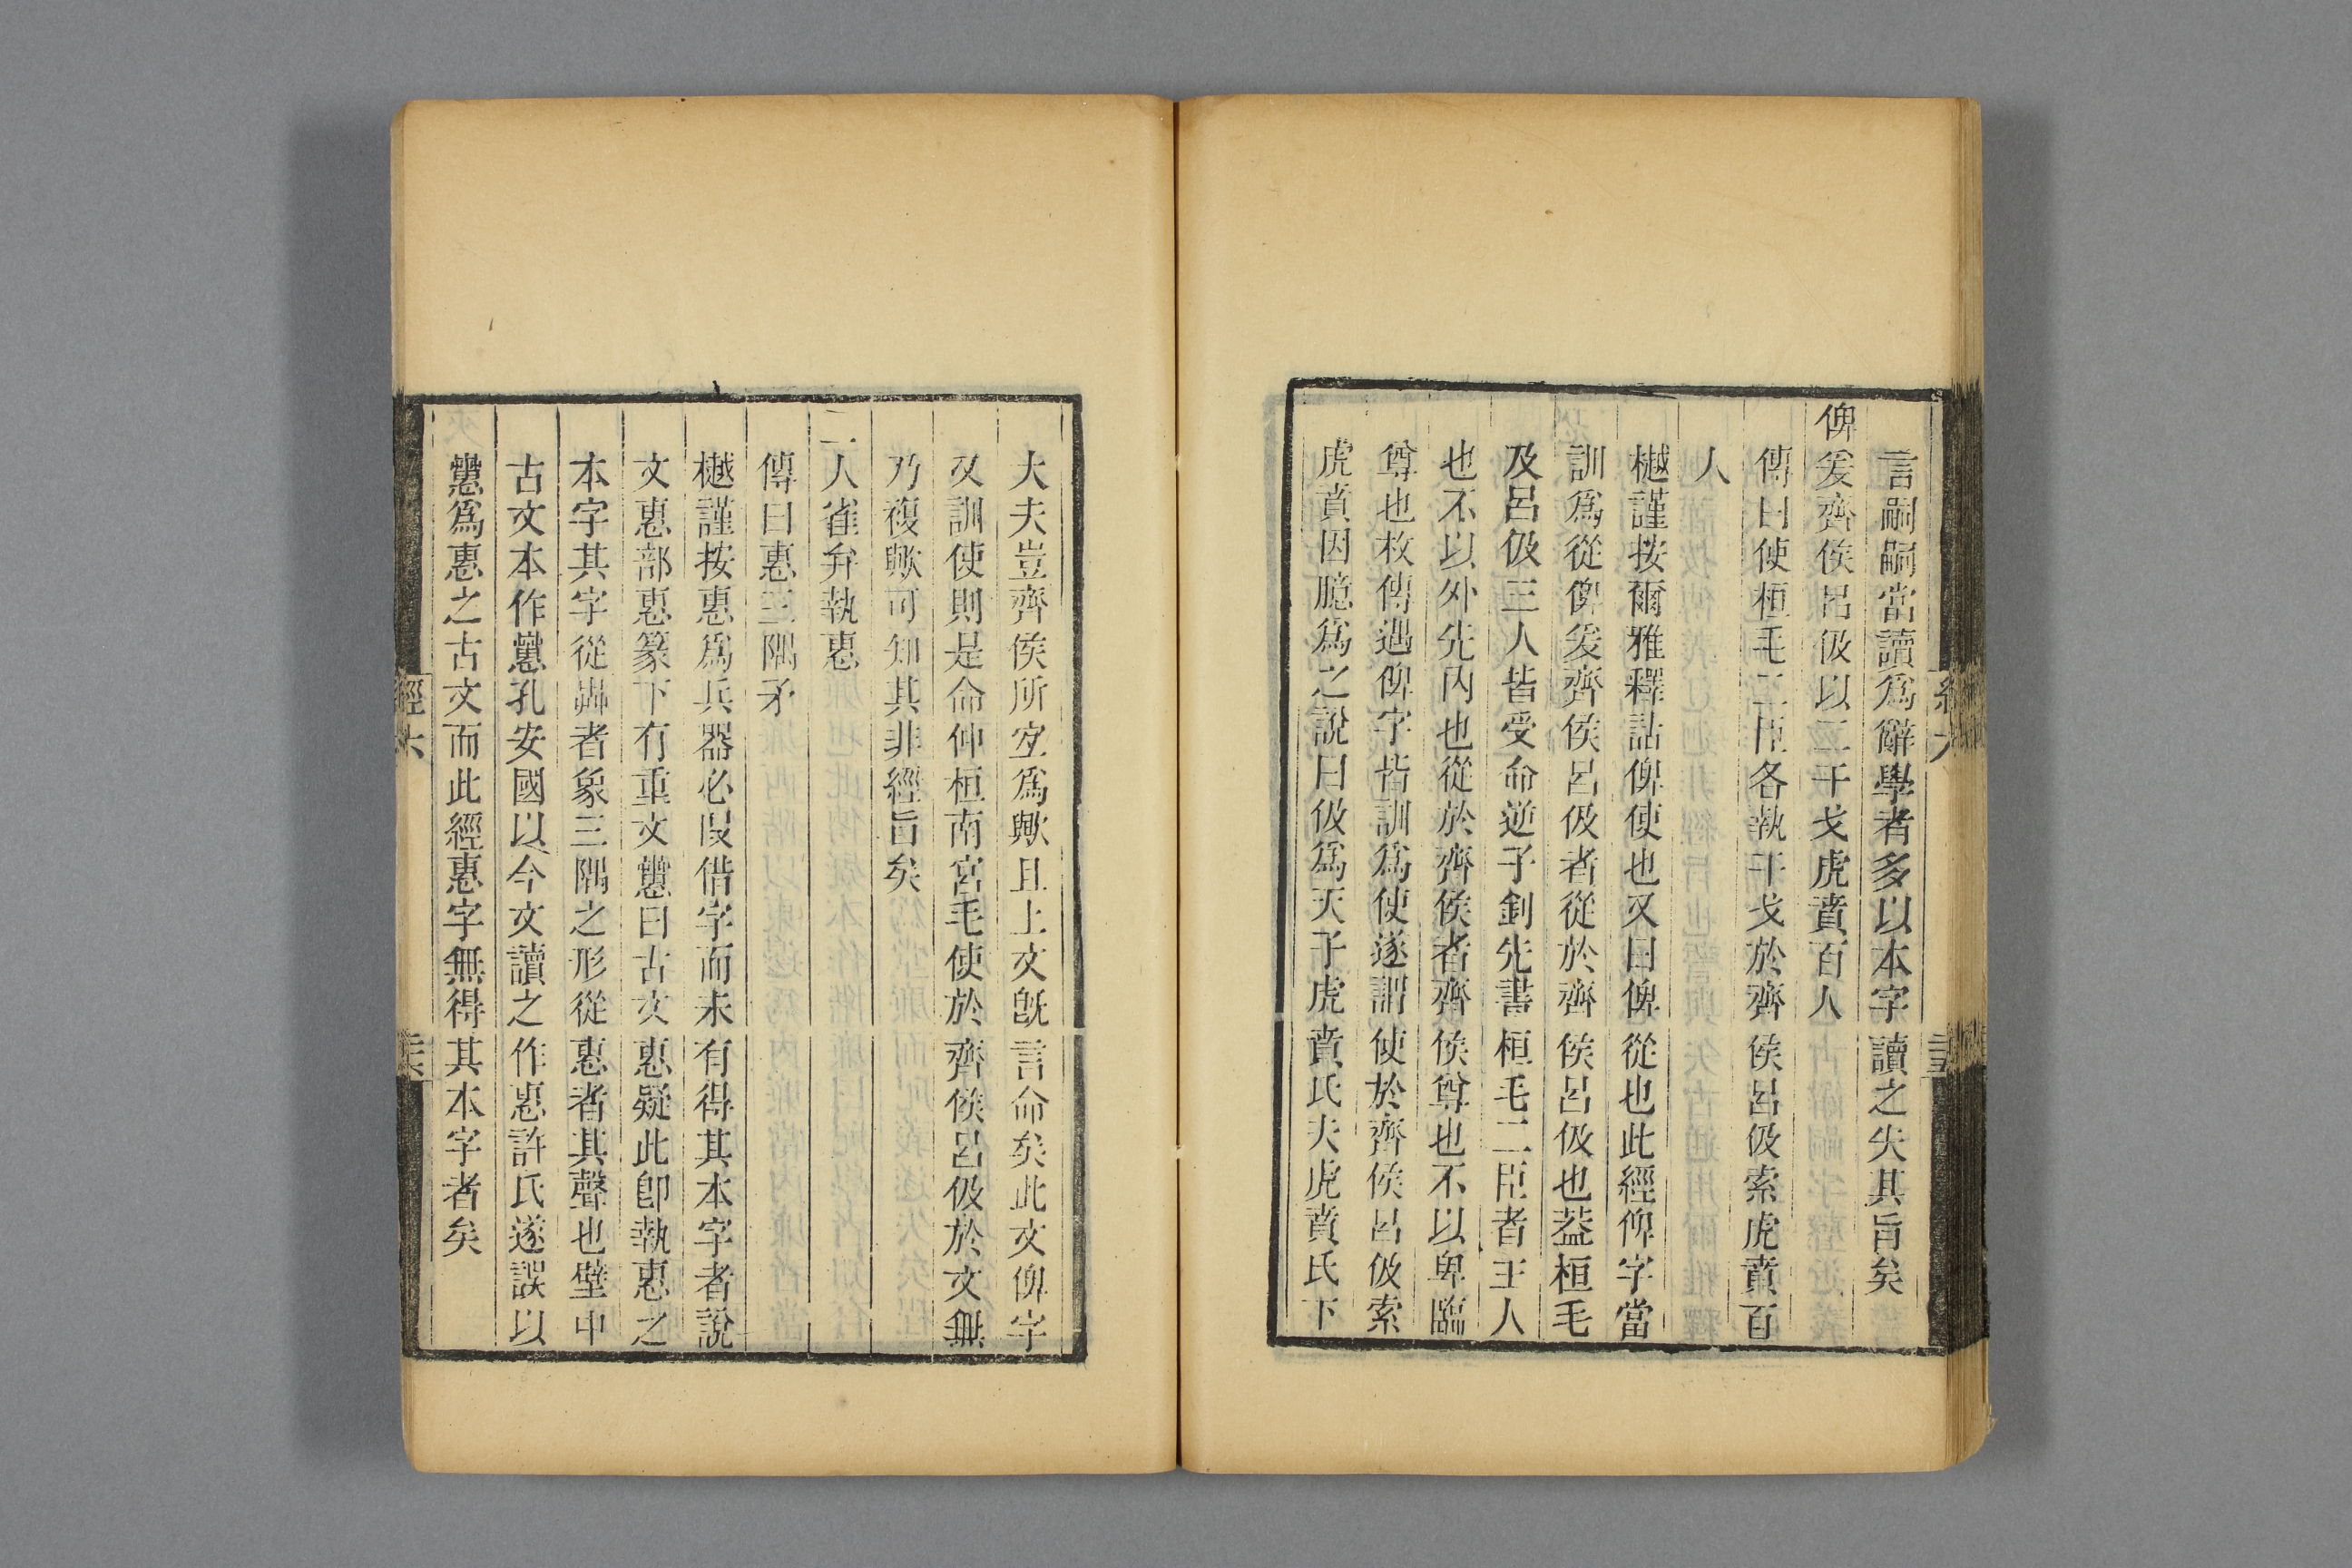 言嗣嗣當讀爲辭學者多以本字讀之失其旨矣
俾爰齊侯呂伋以二干戈虎賁百人
傳曰使桓毛二臣各執干戈於齊侯呂伋索虎賁百
人
樾謹按爾雅釋詁俾使也又曰俾從也此經俾字當
訓爲從俾爰齊侯呂伋者從於齊侯呂伋也葢桓毛
及呂伋三人皆受命逆子釗先書桓毛二臣者王人
也不以外先內也從於齊侯者齊侯尊也不以卑臨
尊也枚傳遇俾字皆訓爲使遂謂使於齊侯呂伋索
虎賁因臆爲之說曰伋爲天子虎賁氏夫虎賁氏下
大夫豈齊侯所宜爲歟且上文旣言命矣此文俾字
又訓使則是命仲桓南宮毛使於齊侯呂伋於文無
乃複歟可知其非經旨矣
二人雀弁執惠
傳曰惠三隅矛
樾謹按惠爲兵器必叚借字而未有得其本字者說
文叀部惠篆下有重文𢤱曰古文惠疑此卽執惠之
本字其字從芔者象三隅之形從惠者其聲也壁中
古文本作𢤱孔安國以今文讀之作惠許氏遂誤以
𢤱爲惠之古文而此經惠字無得其本字者矣
經六